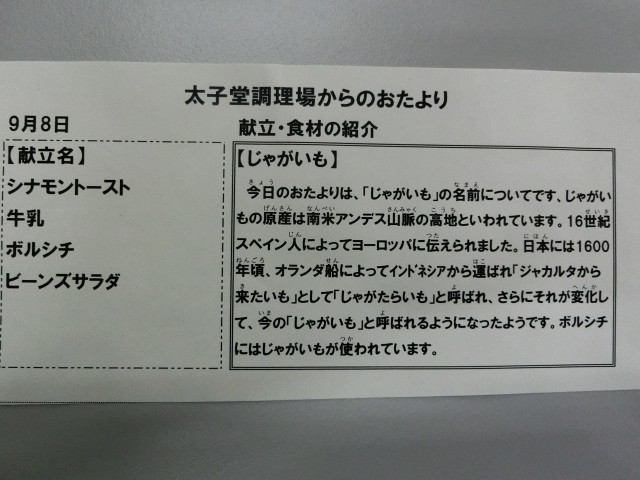 太子堂調理場からのおたより
9月8日
献立・食材の紹介
【献立名】
シナモントースト
牛乳
ボルシチ
ビーンズサラダ
【じゃがいも】
今日のおたよりは、「じゃがいも」の名前についてです、じゃがい
もの原産は南米アンデス山脈の高地といわれています。16世紀
スペイン人によってヨーロッパに伝えられました。日本には1600
年頃、オランダ船によってインドネシアから運ばれ「ジャカルタから
来たいも」として「じゃがたらいも」と呼ばれ、さらにそれが変化し
て、今の「じゃがいも」と呼ばれるようになったようです。ボルシチ
にはじゃがいもが使われています。